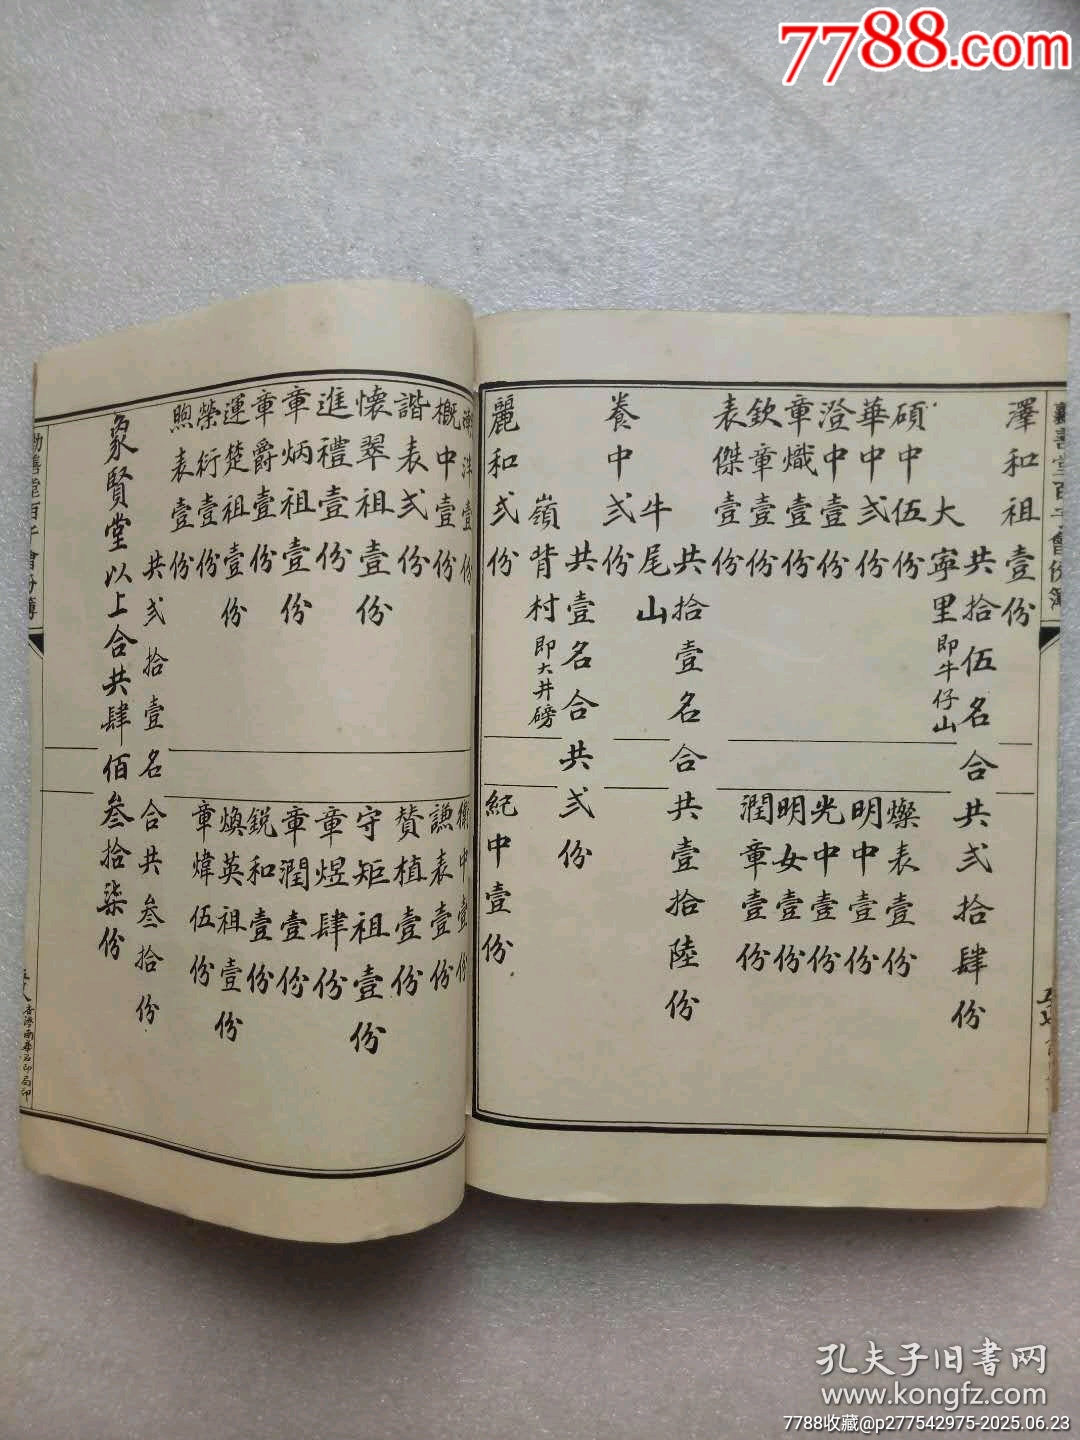 7788.com
澤和祖壹份
共拾伍名合共弍拾肆份
大寧里即牛仔山
碩中伍份
燦表壹份
華中弍份
明中壹份
澄中壹份
光中壹份
章熾壹份
明女壹份
欽章壹份
潤章壹份
表傑壹份
共拾壹名合共壹拾陸份
牛尾山
養中弍份
共壹名合共弍份
嶺背村即大井磅
麗和弍份
紀中壹份
壹份
中壹份
概中壹份
謙表壹份
諧表弍份
贊植壹份
懷翠祖壹份
守矩祖壹份
進禮壹份
章煜肆份
章炳祖壹份
章潤壹份
章爵壹份
銳和壹份
運楚祖壹份
煥英祖壹份
榮衍壹份
章煒伍份
煦表壹份
共弍拾壹名合共叁拾份
象賢堂以上合共肆佰叁拾柒份
香港南華石印局印
孔夫子旧书网
www.kongfz.com
7788收藏@p277542975-2025.06.23